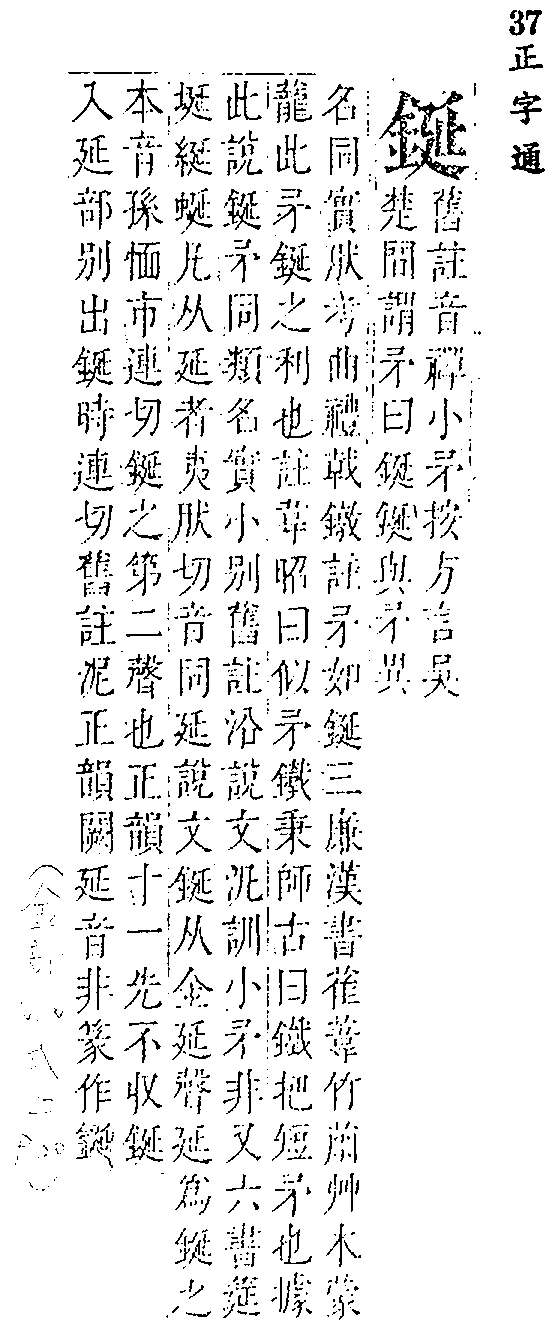 37正字通
鋋
舊註音禪小矛按方言吳
楚間謂矛曰鋋鋋與矛異
名同實猒考曲禮戟鐓註矛如鋋三廉漢書萑葦竹蕭艸木蒙
蘢此矛鋋之利也註韋昭曰似矛鐵秉師古曰鐵把短矛也據
此說鋋矛同類名實小別舊註沿說文汎訓小矛非又六書筵
埏綎蜒凡从延者夷肰切音同延說文鋋从金延聲延爲鋋之
本音孫愐市連切鋋之第二聲也正韻寸一先不收鋋
入延部別出鋋時連切舊註泥正韻闕延音非篆作鋋